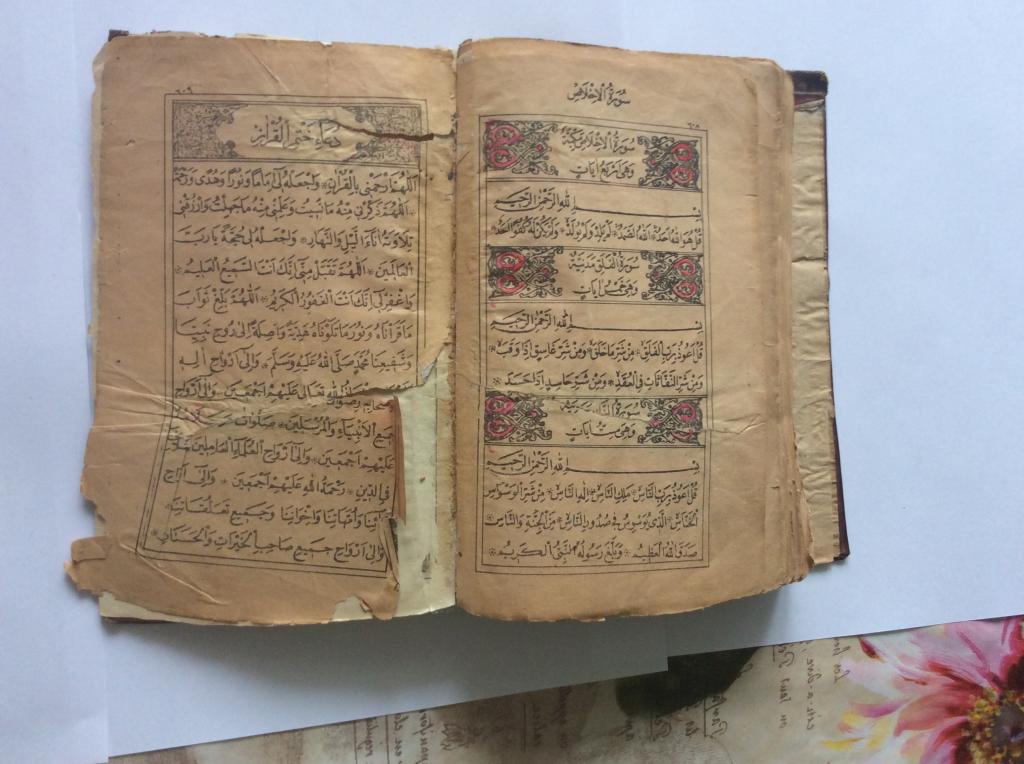 سورة الاخلاص
٦٠٨
سُورَةُ الْاِخْلَاصِ مَكِّيَّةٌ
وَهِىَ اَرْبَعُ اٰيَاتٍ
بِسْمِ اللهِ الرَّحْمٰنِ الرَّحِيمِ
قُلْ هُوَ اللهُ اَحَدٌ * اَللهُ الصَّمَدُ * لَمْ يَلِدْ وَلَمْ يُولَدْ * وَلَمْ يَكُنْ لَهُ كُفُوًا اَحَدٌ
سُورَةُ الْفَلَقِ مَدَنِيَّةٌ
وَهِىَ خَمْسُ اٰيَاتٍ
بِسْمِ اللهِ الرَّحْمٰنِ الرَّحِيمِ
قُلْ اَعُوذُ بِرَبِّ الْفَلَقِ * مِنْ شَرِّ مَا خَلَقَ * وَمِنْ شَرِّ غَاسِقٍ اِذَا وَقَبَ *
وَمِنْ شَرِّ النَّفَّاثَاتِ فِى الْعُقَدِ * وَمِنْ شَرِّ حَاسِدٍ اِذَا حَسَدَ *
سُورَةُ النَّاسِ
وَهِىَ سِتُّ اٰيَاتٍ
بِسْمِ اللهِ الرَّحْمٰنِ الرَّحِيمِ
قُلْ اَعُوذُ بِرَبِّ النَّاسِ * مَلِكِ النَّاسِ * اِلٰهِ النَّاسِ * مِنْ شَرِّ الْوَسْوَاسِ
الْخَنَّاسِ * اَلَّذِى يُوَسْوِسُ فِى صُدُورِ النَّاسِ * مِنَ الْجِنَّةِ وَالنَّاسِ
صَدَقَ اللهُ الْعَظِيمُ * وَبَلَّغَ رَسُولُهُ النَّبِىُّ الْكَرِيمُ *
٦٠٩
دُعَاءُ خَتْمِ الْقُرْاٰنِ
اَللّٰهُمَّ ارْحَمْنِى بِالْقُرْاٰنِ * وَاجْعَلْهُ لِى اِمَامًا وَنُورًا وَهُدًى وَرَحْمَةً
اَللّٰهُمَّ ذَكِّرْنِى مِنْهُ مَا نَسِيتُ وَعَلِّمْنِى مِنْهُ مَا جَهِلْتُ وَارْزُقْنِى
تِلَاوَتَهُ اٰنَاءَ الَّيْلِ وَالنَّهَارِ * وَاجْعَلْهُ لِى حُجَّةً يَا رَبَّ
الْعَالَمِينَ * اَللّٰهُمَّ تَقَبَّلْ مِنِّى اِنَّكَ اَنْتَ السَّمِيعُ الْعَلِيمُ *
وَاغْفِرْ لِى اِنَّكَ اَنْتَ الْغَفُورُ الْكَرِيمُ * اَللّٰهُمَّ بَلِّغْ ثَوَابَ
مَا قَرَأْنَاهُ وَنُورَ مَا تَلَوْنَاهُ هَدِيَّةً وَاصِلَةً اِلٰى رُوحِ نَبِيِّنَا
وَشَفِيعِنَا مُحَمَّدٍ صَلَّى اللهُ عَلَيْهِ وَسَلَّمَ * وَاِلٰى اَرْوَاحِ اٰلِهِ
وَاَصْحَابِهِ رِضْوَانُ اللهِ تَعَالٰى عَلَيْهِمْ اَجْمَعِينَ * وَاِلٰى اَرْوَاحِ
جَمِيعِ الْاَنْبِيَاءِ وَالْمُرْسَلِينَ * صَلَوَاتُ
عَلَيْهِمْ اَجْمَعِينَ * وَاِلٰى اَرْوَاحِ الْعُلَمَاءِ الْعَامِلِينَ
فِى الدِّينِ * رَحْمَةُ اللهِ عَلَيْهِمْ اَجْمَعِينَ * وَاِلٰى اَرْوَاحِ
اٰبَائِنَا وَاُمَّهَاتِنَا وَاِخْوَانِنَا وَجَمِيعِ تَعَلُّقَاتِنَا
وَاِلٰى اَرْوَاحِ جَمِيعِ صَاحِبِ الْخَيْرَاتِ وَالْحَسَنَاتِ